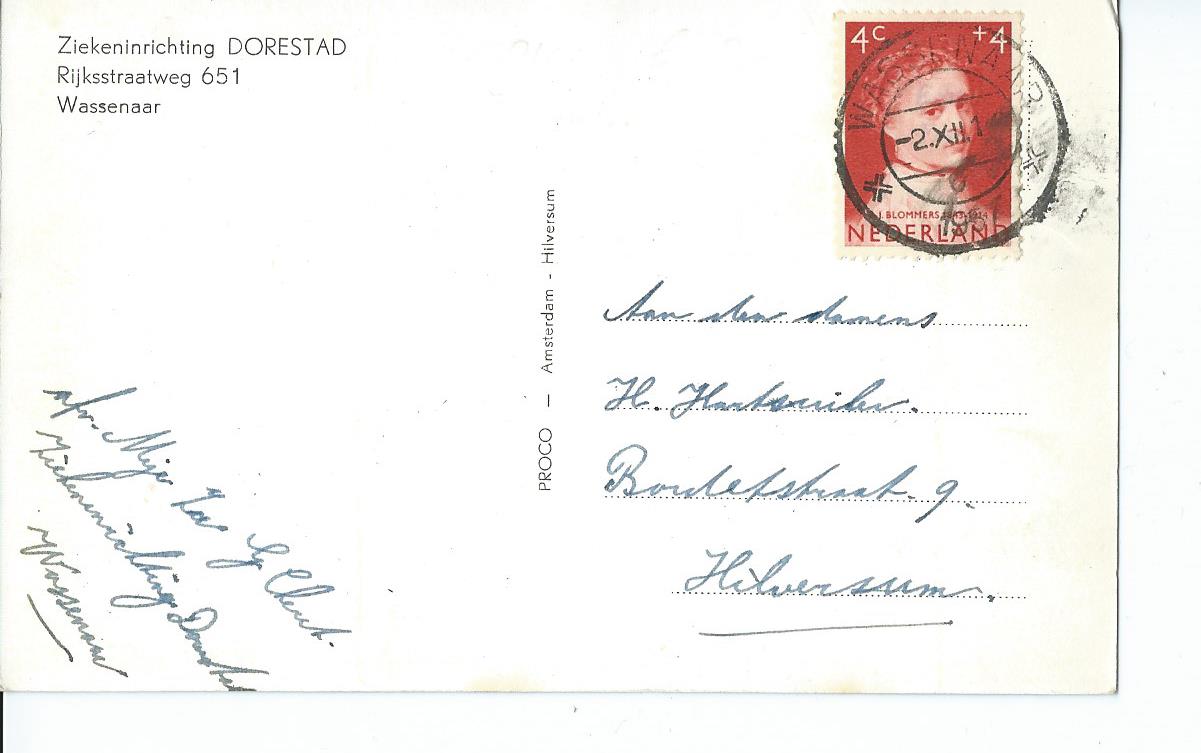 Ziekeninrichting DORESTAD
Rijksstraatweg 651
Wassenaar
4C +4
J. BLOMMERS 1845-1914
NEDERLAND
WASSENAAR
-2.XII.1
195
PROCO — Amsterdam - Hilversum
Aan den damens
H.
9.
Hilversum.
afz.
Ziekeninrichting Dorestad
Wassenaar